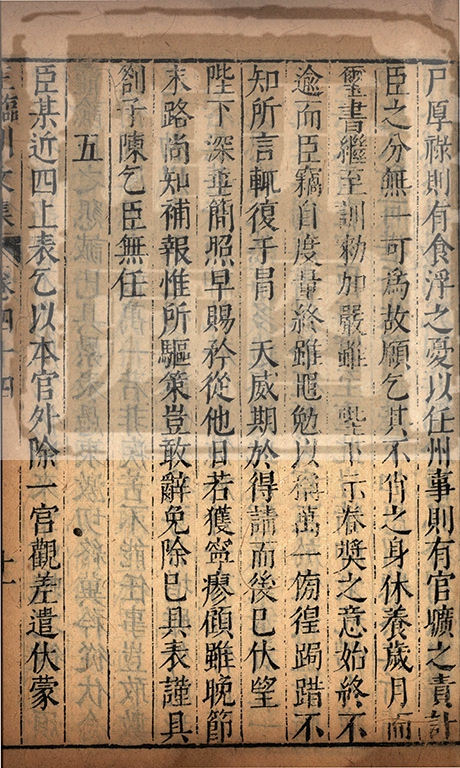 尸厚祿則有食浮之憂以任州事則有官曠之責計
臣之分無一可為故願乞其不肖之身休養歲月而
璽書繼至訓勑加嚴雖 陛下示眷獎之意始終不
逾而臣竊自度量終雖黽勉以稱萬一徊徨跼蹐不
知所言輒復干冒 天威期於得請而後已伏望
陛下深垂簡照早賜矜從他日若獲寧瘳顧雖晚節
末路尚知補報惟所驅策豈敢辭免除已具表謹具
劄子陳乞臣無任
五
臣某近四上表乞以本官外除一宮觀差遣伏蒙
王臨川文集 卷四十四 十一